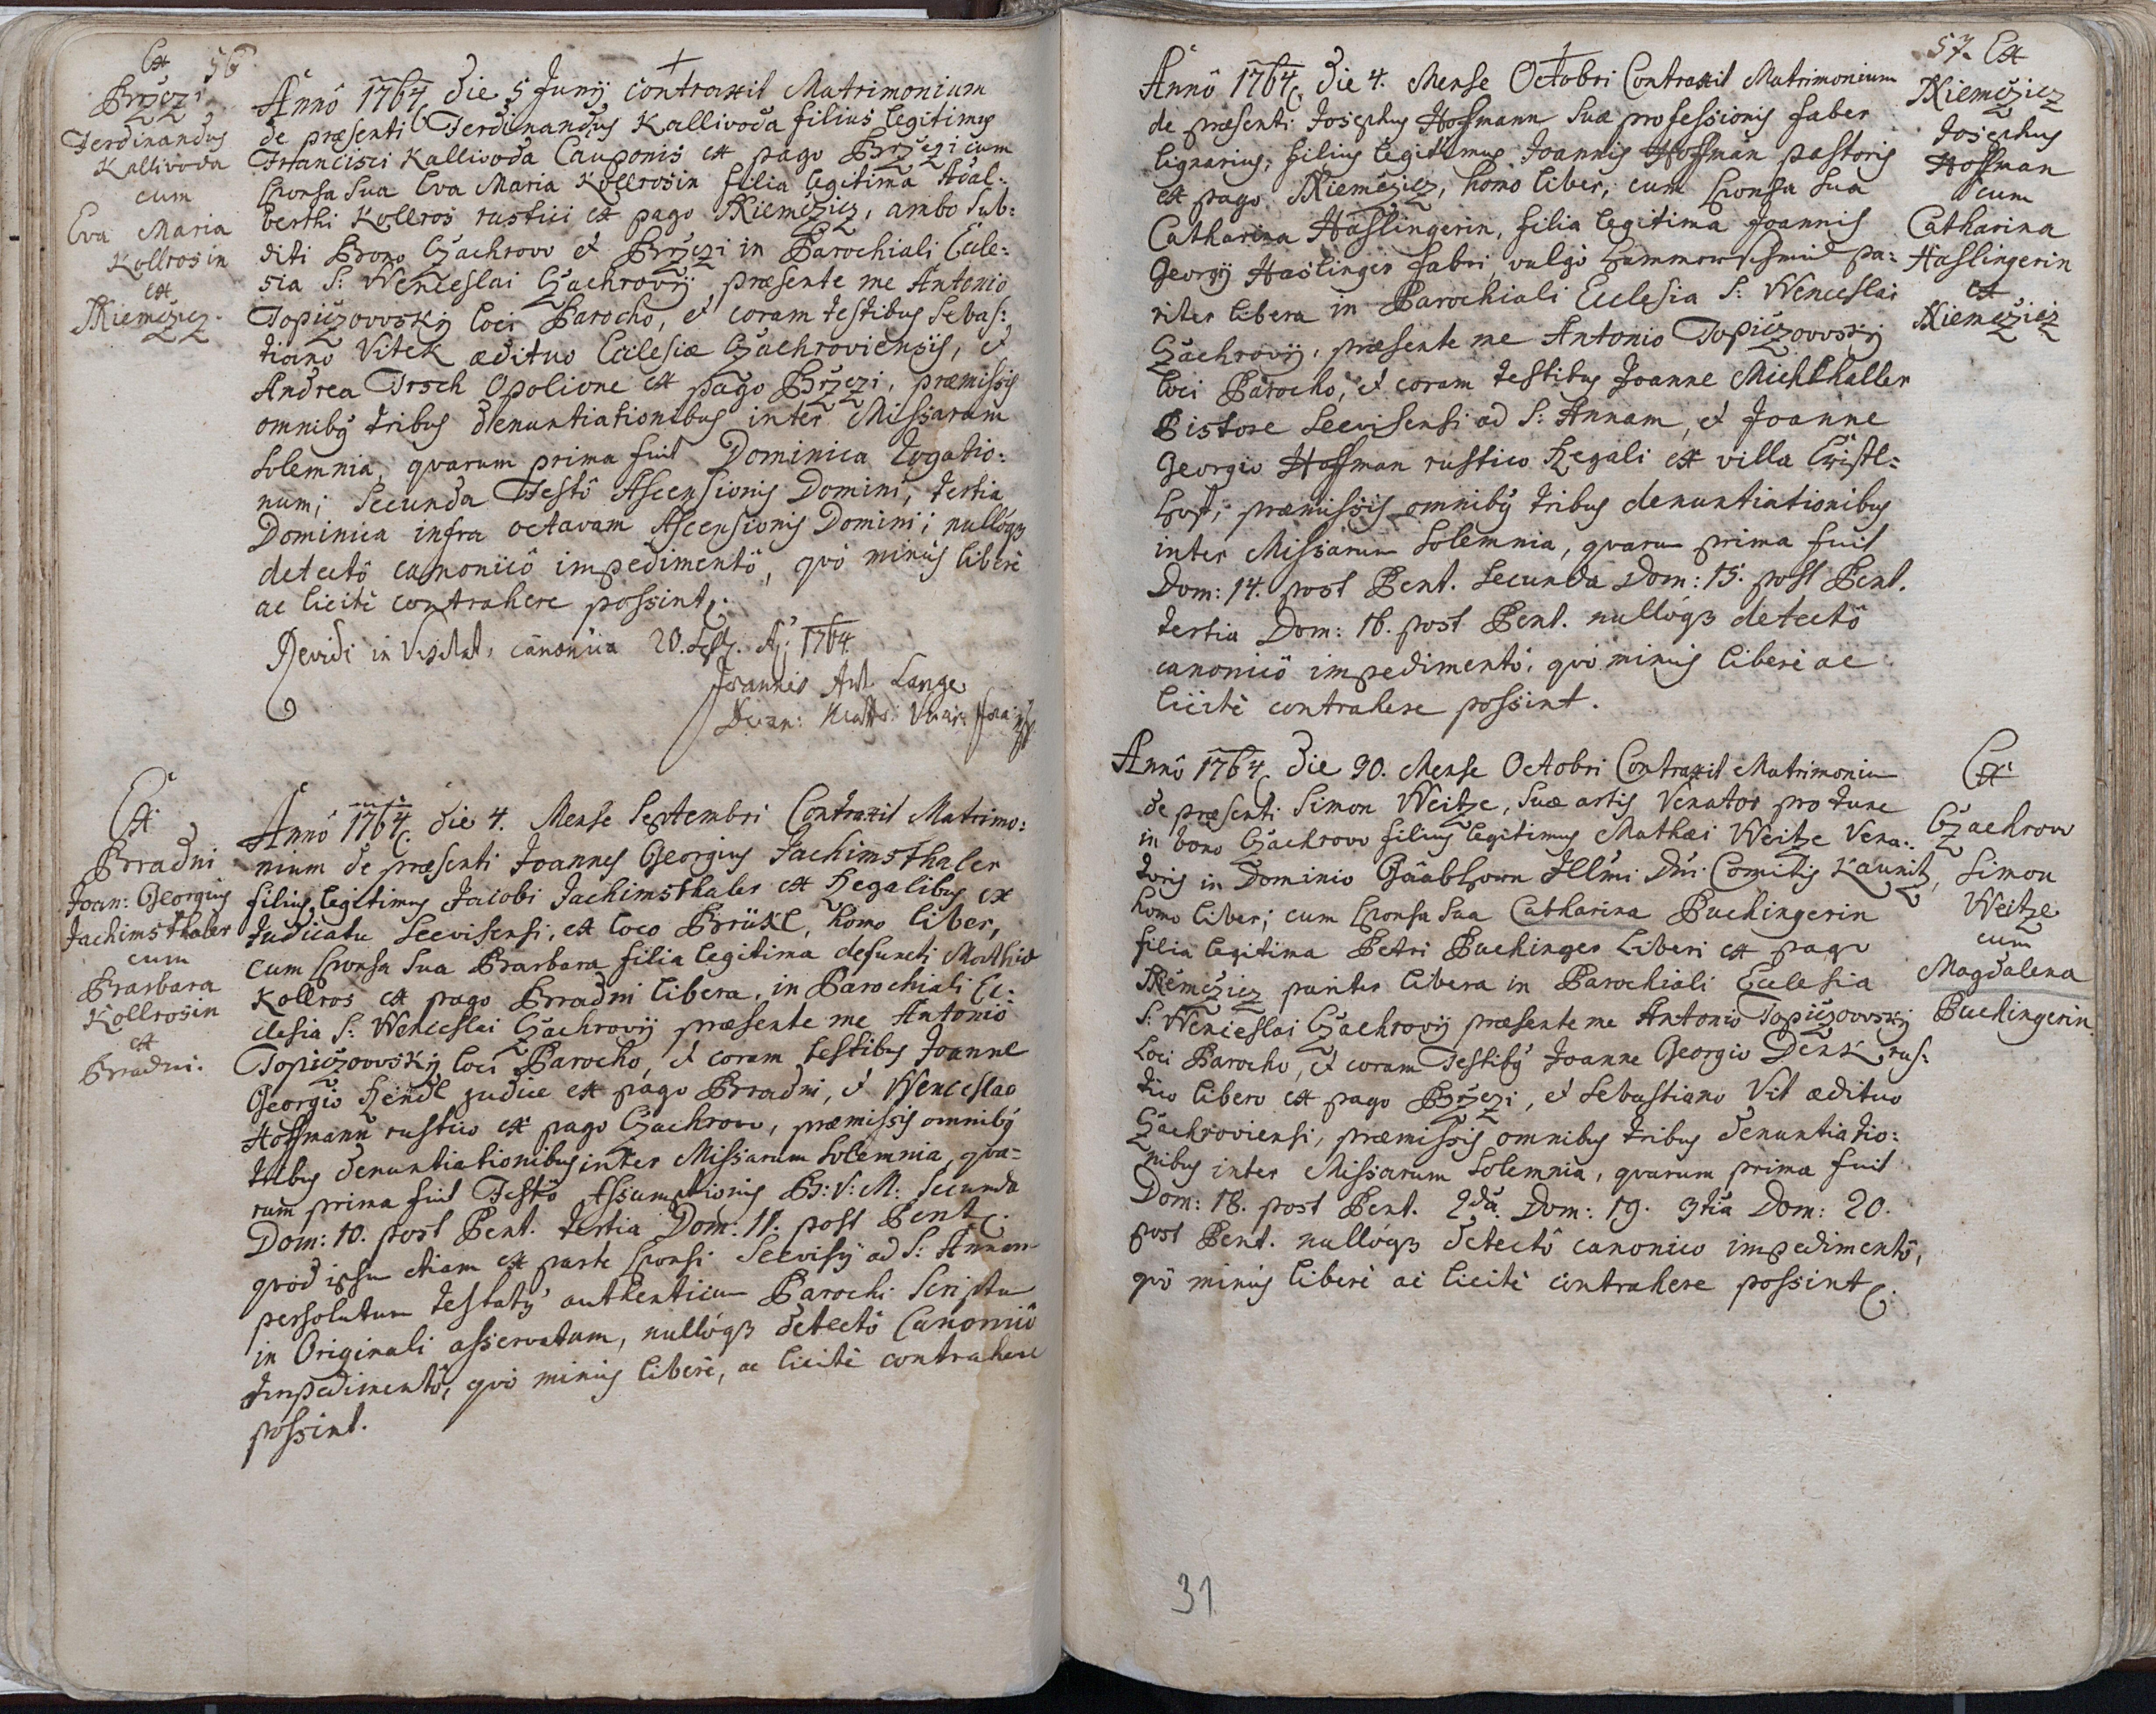 Ex 56
Brzezi
Ferdinandus
Kallivoda
cum
Eva Maria
Kollrosin
ex
Niemčzicz.
Annô 1764 die 5 Junij contraxit Matrimonium
de præsenti Ferdinandus Kallivoda filius legitimus
Francisci Kallivoda Cauponis ex pago Brzezi cum
sponsa sua Eva Maria Kollrosin filia legitima Adal:
berthi Kollros rustici ex pago Niemčzicz, ambo sub:
diti Bono Czachrow et Brzezi in Parochiali Eccle:
sia S: Wenceslai Czachrovij præsente me Antonio
Topiczovvsky loci Parocho, et coram testibus Sebas:
tiano Vitek ædituo Ecclesiæ Czachroviensis, et
Andrea Irsch Opolione ex pago Brzezi, præmissis
omnibus tribus denuntiationibus inter Missarum
solemnia, quarum prima fuit Dominica Rogatio:
num; secunda Festô Ascensionis Domini, tertia
Dominica infra octavam Ascensionis Domini; nullóqз
detectô canonicô impedimentô, quô minùs liberè
ac licitè contrahere possint.
Revidi in Visitat. canonica 20. A: 1764
Joannes Ant. Lange
Decan:
Ex
Bradni
Joan: Georgius
Jachimsthaler
cum
Barbara
Kollrosin
ex
Bradni.
Annô 1764. die 4. Mense Septembri Contraxit Matrimo:
nium de præsenti Joannes Georgius Jachimsthaler
filius legitimus Jacobi Jachimsthaler ex Regalibus ex
Judicatu Seevisensi, ex loco Brükl, homo liber,
cum sponsa sua Barbara filia legitima defuncti Mathiæ
Kollros ex pago Bradni libera, in Parochiali Ec:
clesia S: Wenceslai Czachrovij præsente me Antonio
Topiczovvsky loci Parocho, et coram testibus Joanne
Georgio Hendl judice ex pago Bradni, et Wenceslao
Hoffmann rustico ex pago Czachrow, præmissis omnibus
tribus denuntiationibus inter Missarum solemnia, qua=
rum prima fuit Festô Assumptionis B: V: M: secunda
Dom: 10. post Pent. tertia Dom: 11. post Pent.
quod ipsum etiam ex parte sponsi Seevisij ad S: Annam
persolutum testatur authenticum Parochi Scriptum
in Originali asservatum, nullóqз detectô Canonicô
Impedimentô, quô minùs liberè, ac licitè contrahere
possint.
57. Ex
Niemčzicz
Josephus
Hoffman
cum
Catharina
Haslingerin
ex
Niemčzicz
Annô 1764. die 4. Mense Octobri Contraxit Matrimonium
de præsenti Josephus Hoffmann suæ professionis faber
lignarius, filius legitimus Joannis Hoffman pastoris
ex pago Niemčzicz, homo liber, cum sponsa sua
Catharina Haslingerin, filia legitima Joannis
Georgij Haslinger fabri vulgò Hammerschmid pa:
riter libera in Parochiali Ecclesia S: Wenceslai
Czachrovij, præsente me Antonio Topiczovvsky
loci Parocho, et coram testibus Joanne Michthaller
Pistore Seevisensi ad S: Annam, et Joanne
Georgio Hoffman rustico Regali ex villa Cristl=
Hof, præmissis omnibus tribus denuntiationibus
inter Missarum solemnia, quarum prima fuit
Dom: 14. post Pent. secunda Dom: 15. post Pent.
tertia Dom: 16. post Pent. nullóqз detectô
canonicô impedimentô, quô minùs liberè ac
licitè contrahere possint.
Ex
Czachrow
Simon
Weitze
cum
Magdalena
Puchingerin
Annô 1764. die 30. Mense Octobri Contraxit Matrimonium
de præsenti Simon Weitze, suæ artis Venator pro tunc
in bono Czachrow filius legitimus Mathæi Weitze Vena:
toris in Dominio Illmi: Dni: Comitis Kaunitz,
homo liber; cum sponsa sua Catharina Puchingerin
filia legitima Petri Puchinger Liberi ex pago
Niemčzicz pariter libera in Parochiali Ecclesia
S: Wenceslai Czachrovij præsente me Antonio Topiczovvsky
Loci Parocho, et coram Testibus Joanne Georgio Denk rus:
tico libero ex pago Brzezi, et Sebastiano Vit ædituo
Czachroviensi, præmissis omnibus tribus denuntiatio:
nibus inter Missarum solemnia, quarum prima fuit
Dom: 18. post Pent. 2da. Dom: 19. 3tia Dom: 20.
post Pent. nullóqз detectô canonico impedimentô,
quô minùs liberè ac licitè contrahere possint.
31